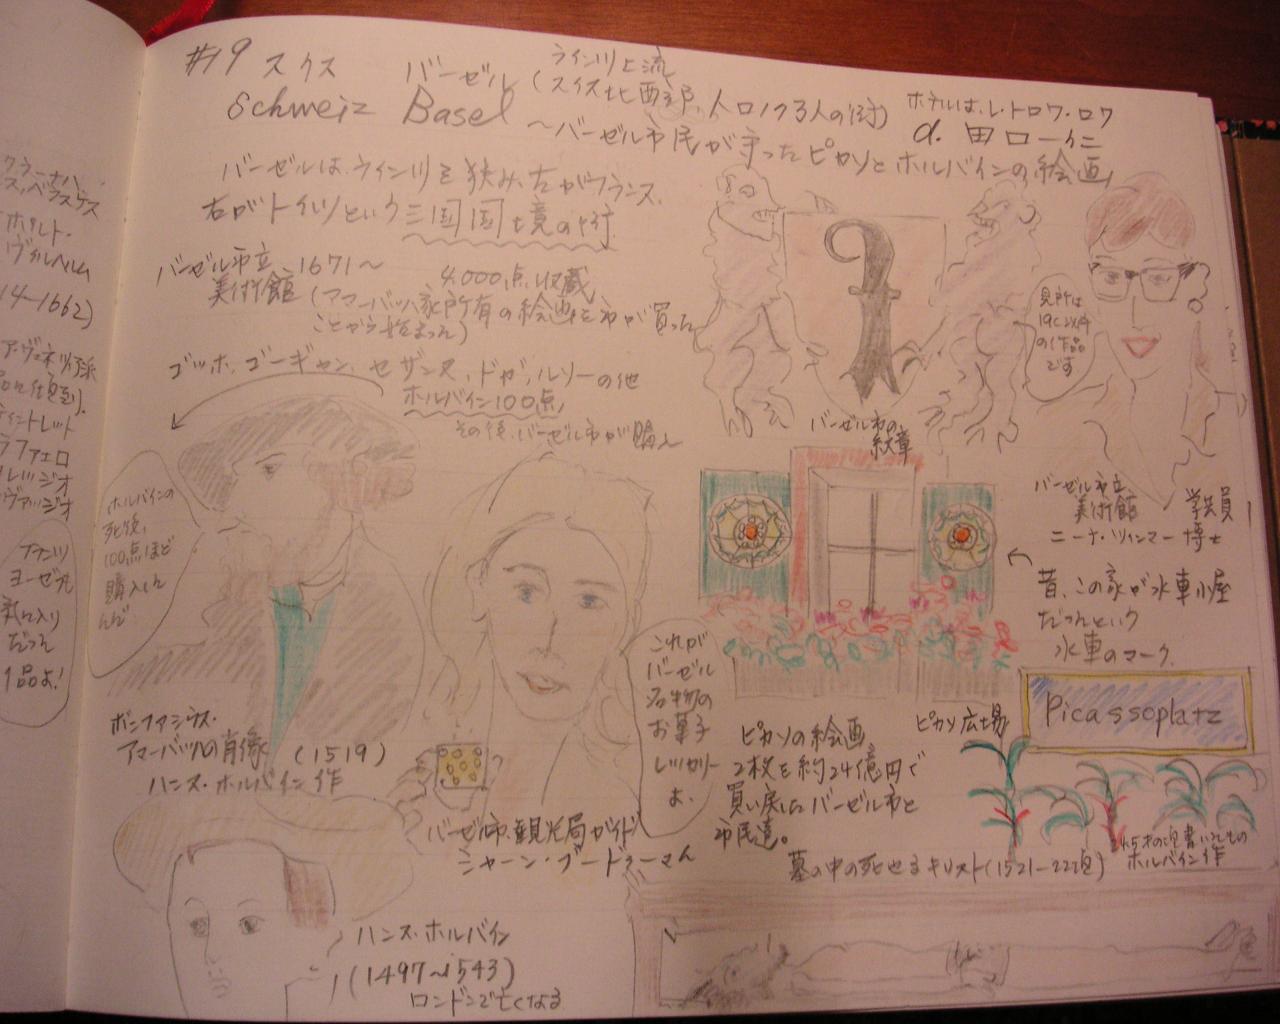 #19 スイス バーゼル
ライン川上流
(スイス北西部、人口17万人の街)
Schweiz Basel
ホテルは、レ・トロワ・ロワ
〜バーゼル市民が守ったピカソとホルバインの絵画
バーゼルは、ライン川を狭み、左がフランス、
右がドイツという三国国境の街
バーゼル市立
美術館 1671〜
4,000点収蔵
(アマーバッハ家所有の絵画を市が買った
ことから始まった)
ゴッホ、ゴーギャン、セザンヌ、ドガ、ルソーの他
ホルバイン100点
その後、バーゼル市が購入
バーゼル市の
紋章
見所は
19C以降
の作品
です
バーゼル市立
美術館 学芸員
ニーナ・ツィンマー博士
昔、この家が水車小屋
だったという
水車のマーク
ホルバインの
死後、
100点ほど
購入した
んだ
ボニファシウス・
アマーバッハの肖像 (1519)
ハンス・ホルバイン作
これが
バーゼル
名物の
お菓子
レッカリー
よ、
バーゼル市、観光局ガイド
ピカソの絵画
2枚を約24億円で
買い戻したバーゼル市と
市民達。
ピカソ広場
Picassoplatz
墓の中の死せるキリスト(1521-22頃)
ホルバイン作
ハンス・ホルバイン
(1497〜1543)
ロンドンで亡くなる
クラーナハ、
ベラスケス
ヴィルヘルム
14-1662)
ティントレット
ラファエロ
ヨーゼフが
気に入り
だった
1品よ!